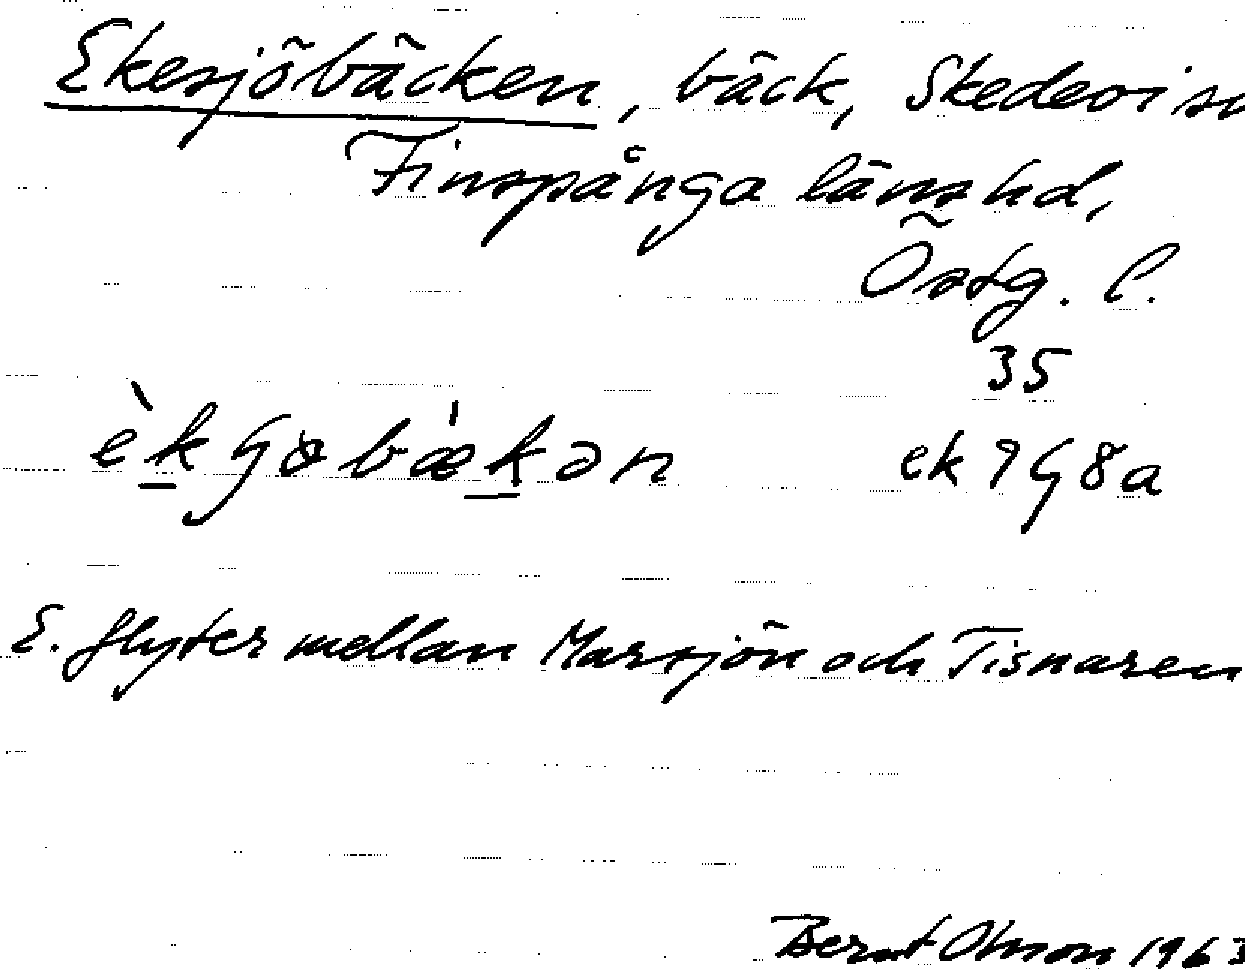 Ekesjöbäcken, bäck, Skedevi sn
Finspånga länshd,
Östg. l.
35
E. flyter mellan Marsjön och Tisnaren
Bernt Olsson 1963